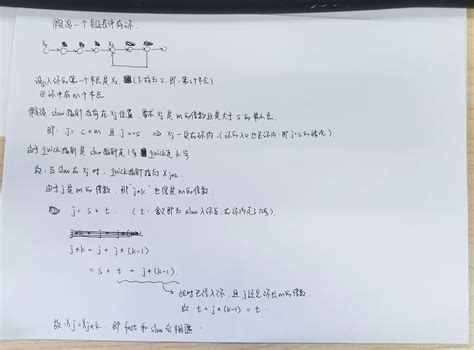 假设一个链表中有环.
X₀ Xs
设① 入环的第一个节点是 Xs. (下标为 s. 即: 第s个节点)
② 环中有 m 个节点
假设 slow 指针当前在 Xj 位置. 要求 Xj 是 m 的倍数且是大于 s 的最小值.
即: j = c*m 且 j>=s ⇒ Xj 一定在环内. (环的入口也是环内: 即 j=s 的情况).
由于 quick 指针是 slow 指针走1步 quick走 k 步
故: 当 slow 在 Xj 时. quick指针指向 Xj*k.
由于 j 是 m 的倍数, 那 "j*k" 也是 m 的倍数.
j = s + t. (t: 含义即为 slow 入环后, 在环内走了 t 步).
j*k = j + j*(k-1)
= s + t + j*(k-1)
此时已经入环. 且 j 还是环长 m 的倍数.
故 t + j*(k-1) = t.
故: Xj = Xj*k. 即 fast 和 slow 会相遇.